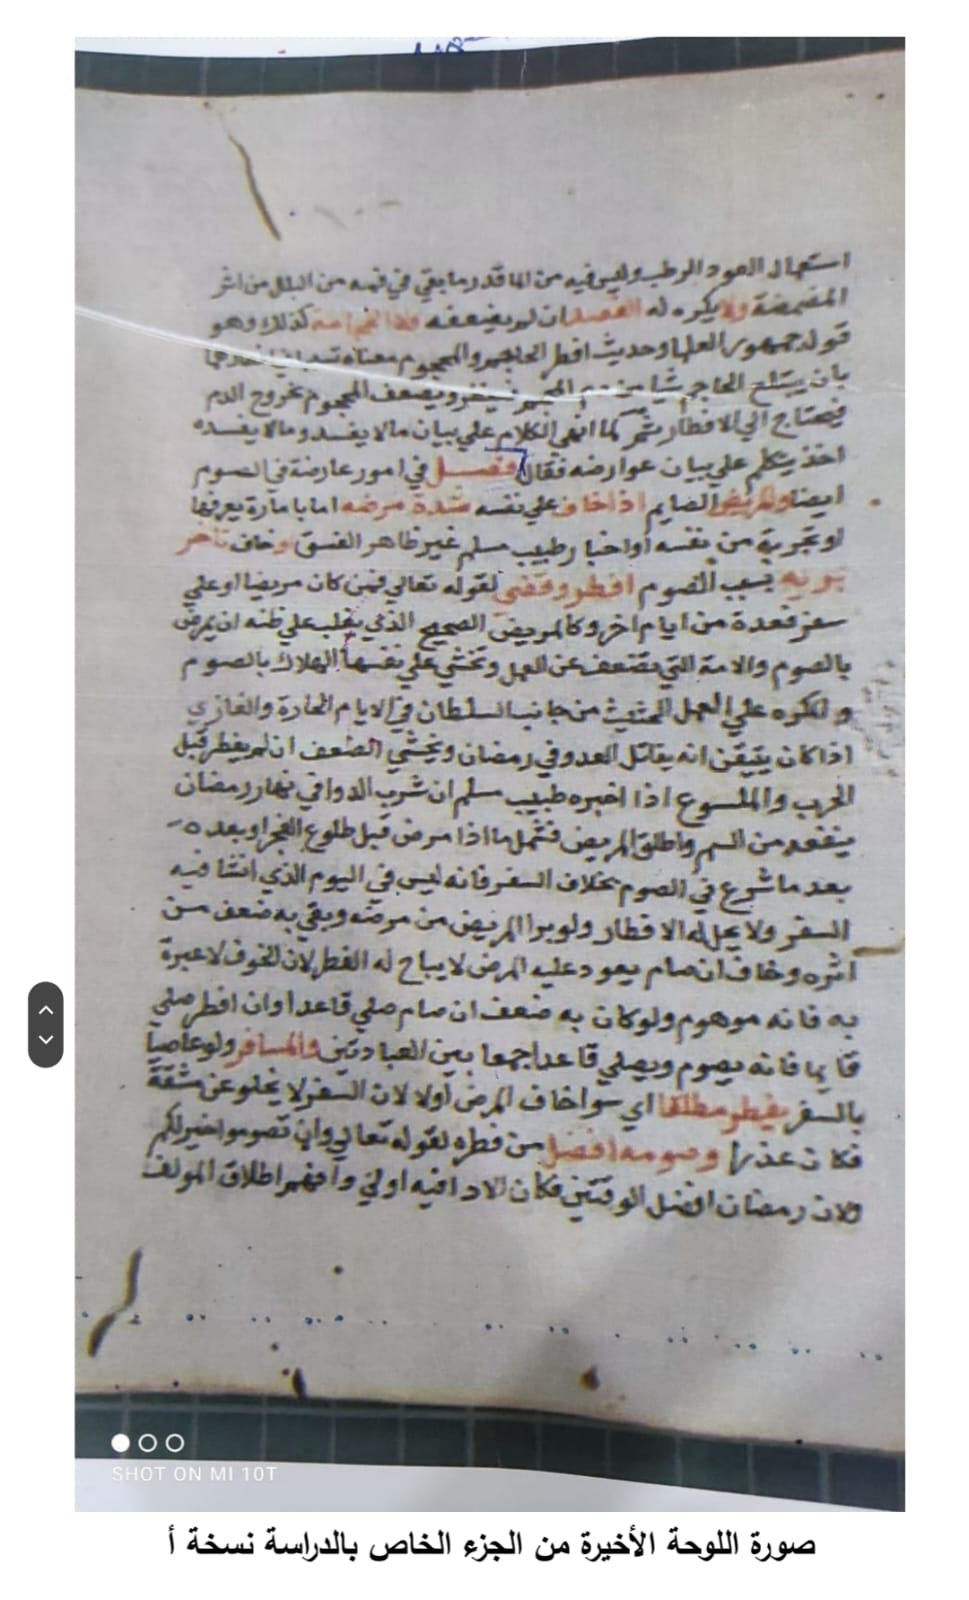 استعمال العود الرطب وليس فيه من الما قدر ما بقي في فمه من البلل من اثر
المضمضة ولا يكره له الفصد ان لم يضعفه وكذا الحجامة كذلك وهو
قول جمهور العلما وحديث افطر الحاجم والمحجوم معناه
بان يبتلع الحاجم شيا من دم المحجوم فيفطر ويضعف المحجوم بخروج الدم
فيحتاج الي الافطار ثم كما انهي الكلام علي بيان ما لا يفسد وما لا يفسده
اخذ يتكلم علي بيان عوارضه فقال فصل في امور عارضة في الصوم
ايضا والمريض الصايم اذا خاف علي نفسه شدة مرضه اما بامارة يعرفها
او تجربة من نفسه او اخبار طبيب مسلم غير ظاهر الفسق او خاف تاخر
بريه بسبب الصوم افطر وقضي لقوله تعالي فمن كان مريضا او علي
سفر فعدة من ايام اخر وكالمريض الصحيح الذي يغلب علي ظنه ان يمرض
بالصوم والامة التي تضعف عن العمل وتخشي علي نفسها الهلاك بالصوم
والمكره علي العمل الحثيث من جانب السلطان في الايام الحارة والغازي
اذا كان يتيقن انه يقاتل العدو في رمضان ويخشي الضعف ان لم يفطر قبل
الحرب والملسوع اذا اخبره طبيب مسلم ان شرب الدوا في نهار رمضان
ينفعه من السم واطلق المريض فشمل ما اذا مرض قبل طلوع الفجر او بعده
بعد ما شرع في الصوم بخلاف السفر فانه ليس في اليوم الذي انشا فيه
السفر ولا يحل له الافطار ولو برا المريض من مرضه وبقي به ضعف من
اثره وخاف ان صام يعود عليه المرض لا يباح له الفطر لان الخوف لا عبرة
به فانه موهوم ولو كان به ضعف ان صام صلي قاعدا وان افطر صلي
قايما فانه يصوم ويصلي قاعدا جمعا بين العبادتين والمسافر ولو عاصيا
بالسفر يفطر مطلقا اي سوا خاف المرض اولا لان السفر لا يخلو عن مشقة
فكان عذرا وصومه افضل من فطره لقوله تعالي وان تصوموا خير لكم
ولان رمضان افضل الوقتين فكان الادا فيه اولي وافهم اطلاق المولف
SHOT ON MI 10T
صورة اللوحة الأخيرة من الجزء الخاص بالدراسة نسخة أ